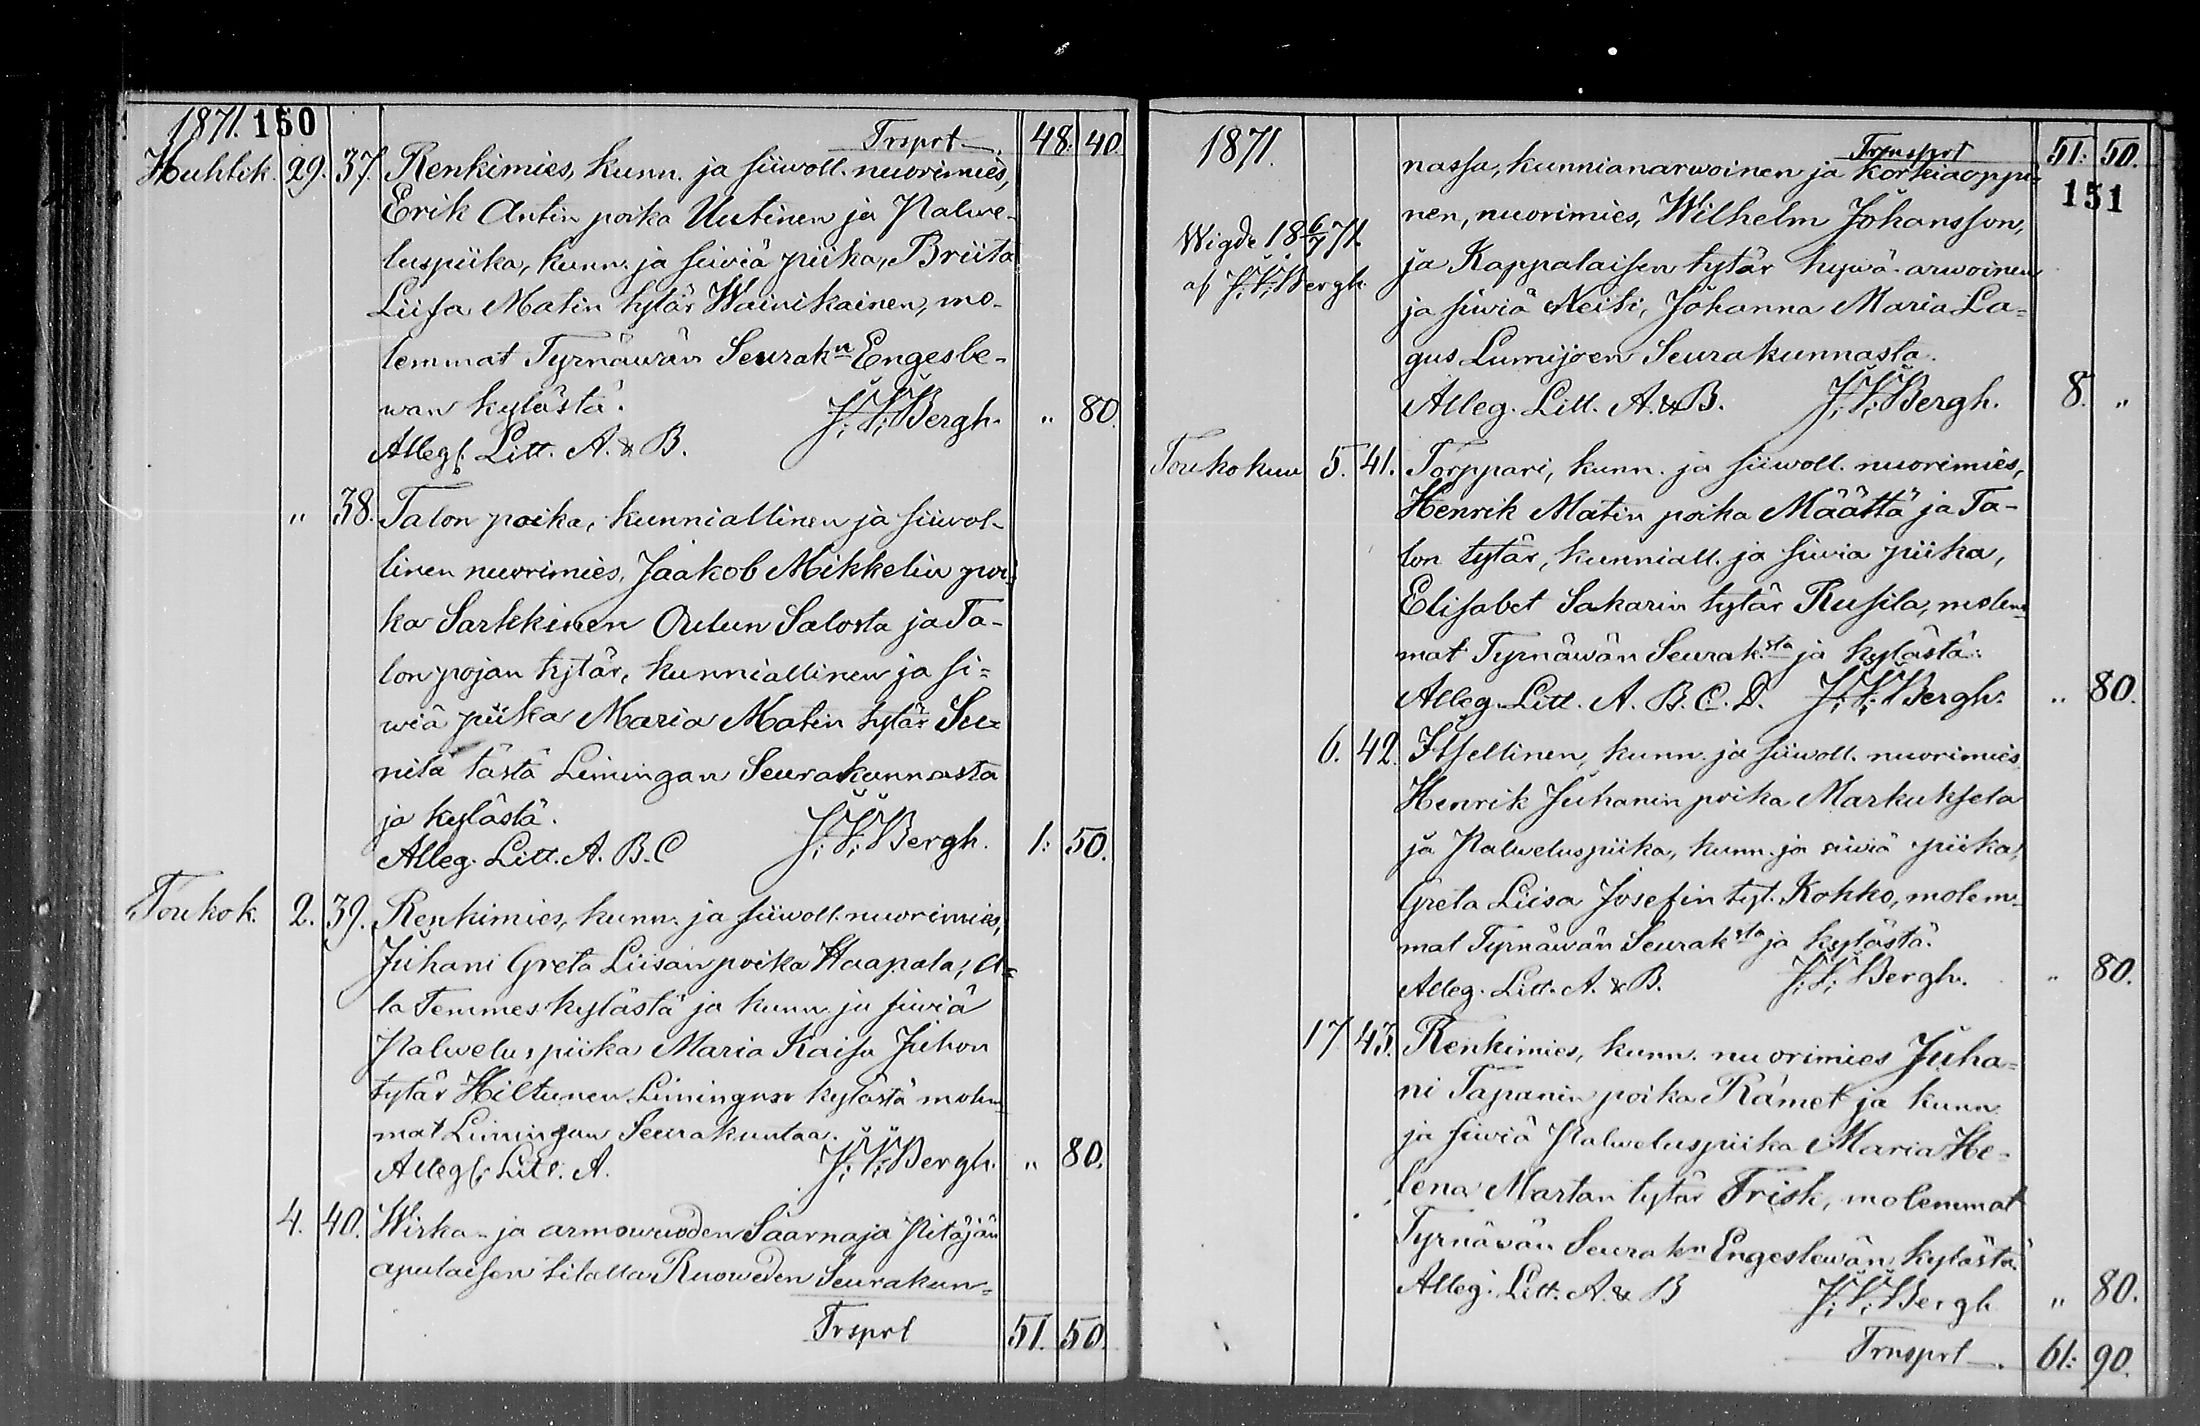 1871. 150
Trsprt 48: 40.
Huhtik. 29. 37. Renkimies, kunn. ja siiwoll. nuorimies,
Erik Antin poika Uutinen ja Palwe-
luspiika, kunn. ja siwiä piika, Briita
Liisa Matin tytär Wainikainen, mo-
lemmat Tyrnäwän Seurakn Engesle-
wan kylästä. J. V. Bergh. „ 80.
Alleg. Litt. A. & B.
„ 38. Talon poika, kunniallinen ja siiwol-
linen nuorimies, Jaakob Mikkelin poi-
ka Sarkkinen Oulun Salosta ja Ta-
lonpojan tytär, kunniallinen ja si=
wiä piika Maria Matin tytär Su=
nila tästä Limingan Seurakunnasta
ja kylästä. J. V. Bergh. 1: 50.
Alleg. Litt. A. B. C
Toukok. 2. 39. Renkimies, kunn. ja siiwoll. nuorimies,
Juhani Greta Liisan poika Haapala, A=
la Temmes kylästä ja kunn. ja siwiä
Palwelus piika Maria Kaisa Juhon
tytär Hiltunen Limingan kylästä molem-
mat Limingan Seurakuntaa.
Alleg. Litt. A. J. V. Bergh. „ 80.
4. 40. Wirka- ja armowuoden Saarnaja Pitäjän
apulaisen tilalla Ruoweden Seurakun=
Trsprt 51. 50.
1871. Trnsprt 51: 50.
nassa, kunnianarwoinen ja korkiaoppi=
151
nen, nuorimies, Wilhelm Johansson,
Wigde 18 6/7 71.
ja Kappalaisen tytär hywä-arwoinen
af J. V. Bergh.
ja siwiä Neiti, Johanna Maria La=
gus Lumijoen Seurakunnasta.
Alleg. Litt. A. & B. J. V. Bergh. 8. „
Toukokuu 5. 41. Torppari, kunn. ja siiwoll. nuorimies,
Henrik Matin poika Määttä ja Ta-
lon tytär, kunniall. ja siwia piika,
Elisabet Sakarin tytär Rusila, molem-
mat Tyrnäwän Seuraksta ja kylästä.
Alleg. Litt. A. B. C. D. J. V. Bergh. „ 80.
6. 42. Itsellinen, kunn. ja siiwoll. nuorimies,
Henrik Juhanin poika Markuksela
ja Palweluspiika, kunn. ja siwiä piika,
Greta Liisa Josefin tyt. Kokko, molem-
mat Tyrnäwän Seuraksta ja kylästä.
Alleg. Litt. A. & B. J. V. Bergh. „ 80.
17 43. Renkimies, kunn. nuorimies Juha=
ni Tapanin poika Rämet ja kunn.
ja siwiä Palweluspiika Maria He=
lena Martan tytär Frisk, molemmat
Tyrnäwän Seurakn Engeslewän kylästä.
Alleg. Litt. A. & B J. V. Bergh „ 80.
Trnsprt 61: 90.